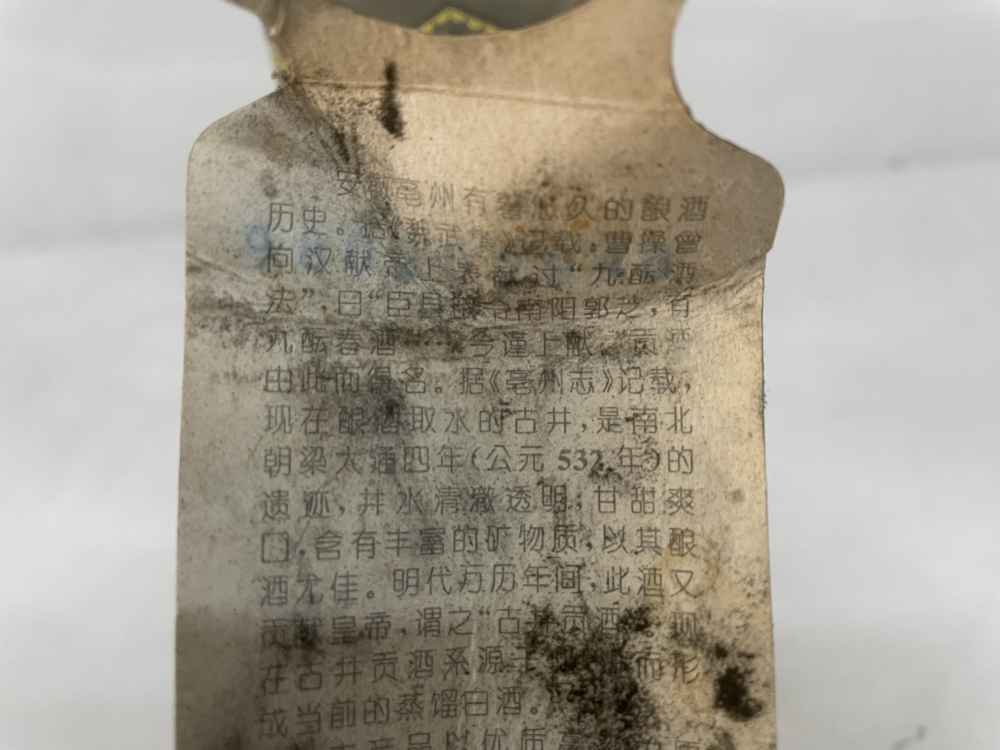 安徽亳州有着悠久的酿酒
历史。据《魏武集》记载,曹操曾
向汉献帝上表献过“九酝酒
法”,曰“臣县故令南阳郭芝,有
九酝春酒……今谨上献。”贡酒
由此而得名。据《亳州志》记载,
现在酿酒取水的古井,是南北
朝梁大通四年(公元532年)的
遗迹,井水清澈透明,甘甜爽
口,含有丰富的矿物质,以其酿
酒尤佳。明代万历年间,此酒又
贡献皇帝,谓之“古井贡酒”。现
在古井贡酒系源于 而形
成当前的蒸馏白酒。
产品以优质